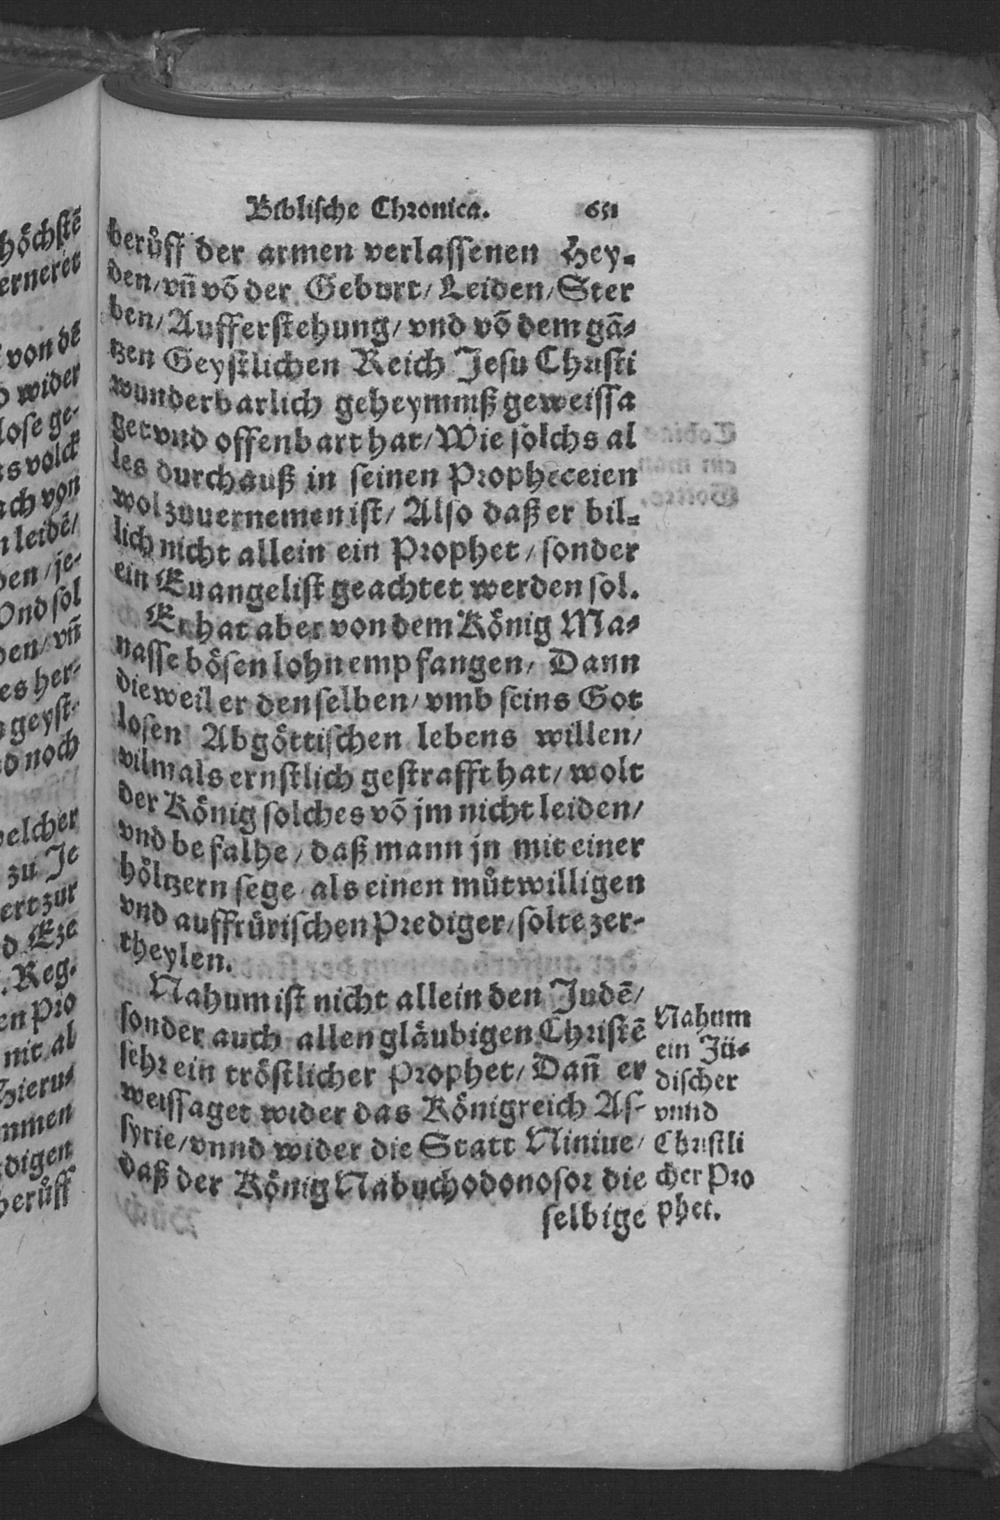 Biblische Chronica. 651
berůff der armen verlassenen Hey-
den/ vn̄ võ der Geburt/ Leiden/ Ster
ben/ Aufferstehung/ vnd võ dem gã-
tzen Geystlichen Reich Jesu Christi
wunderbarlich geheymniß geweissa
get vnd offenbart hat/ Wie solchs al
les durchauß in seinen Propheceien
wol zuuernemen ist/ Also daß er bil-
lich nicht allein ein Prophet/ sonder
ein Euangelist geachtet werden sol.
Er hat aber von dem König Ma-
nasse bösen lohn empfangen/ Dann
dieweil er denselben/ vmb seins Got
losen Abgöttischen lebens willen/
vilmals ernstlich gestrafft hat/ wolt
der König solches võ jm nicht leiden/
vnd befalhe/ daß mann jn mit einer
höltzern sege als einen můtwilligen
vnd auffrürischen Prediger/ solte zer-
theylen.
Nahum ist nicht allein den Judē/
sonder auch allen gläubigen Christē
sehr ein tröstlicher Prophet/ Dañ er
weissaget wider das Königreich As-
syrie/ vnnd wider die Statt Niniue/
daß der König Nabuchodonosor die
selbige
Nahum
ein Jü-
discher
vnnd
Christli
cher Pro
phet.
höchstē
erneret
von dē
wider
lose ge-
volck
von
leidē/
den/ je-
Vnd sol
vn̄
es her-
geyst-
noch
welcher
zu Je
zur
Eze
Reg.
en Pro
nit al
Hieru-
mmen
digen
berůff